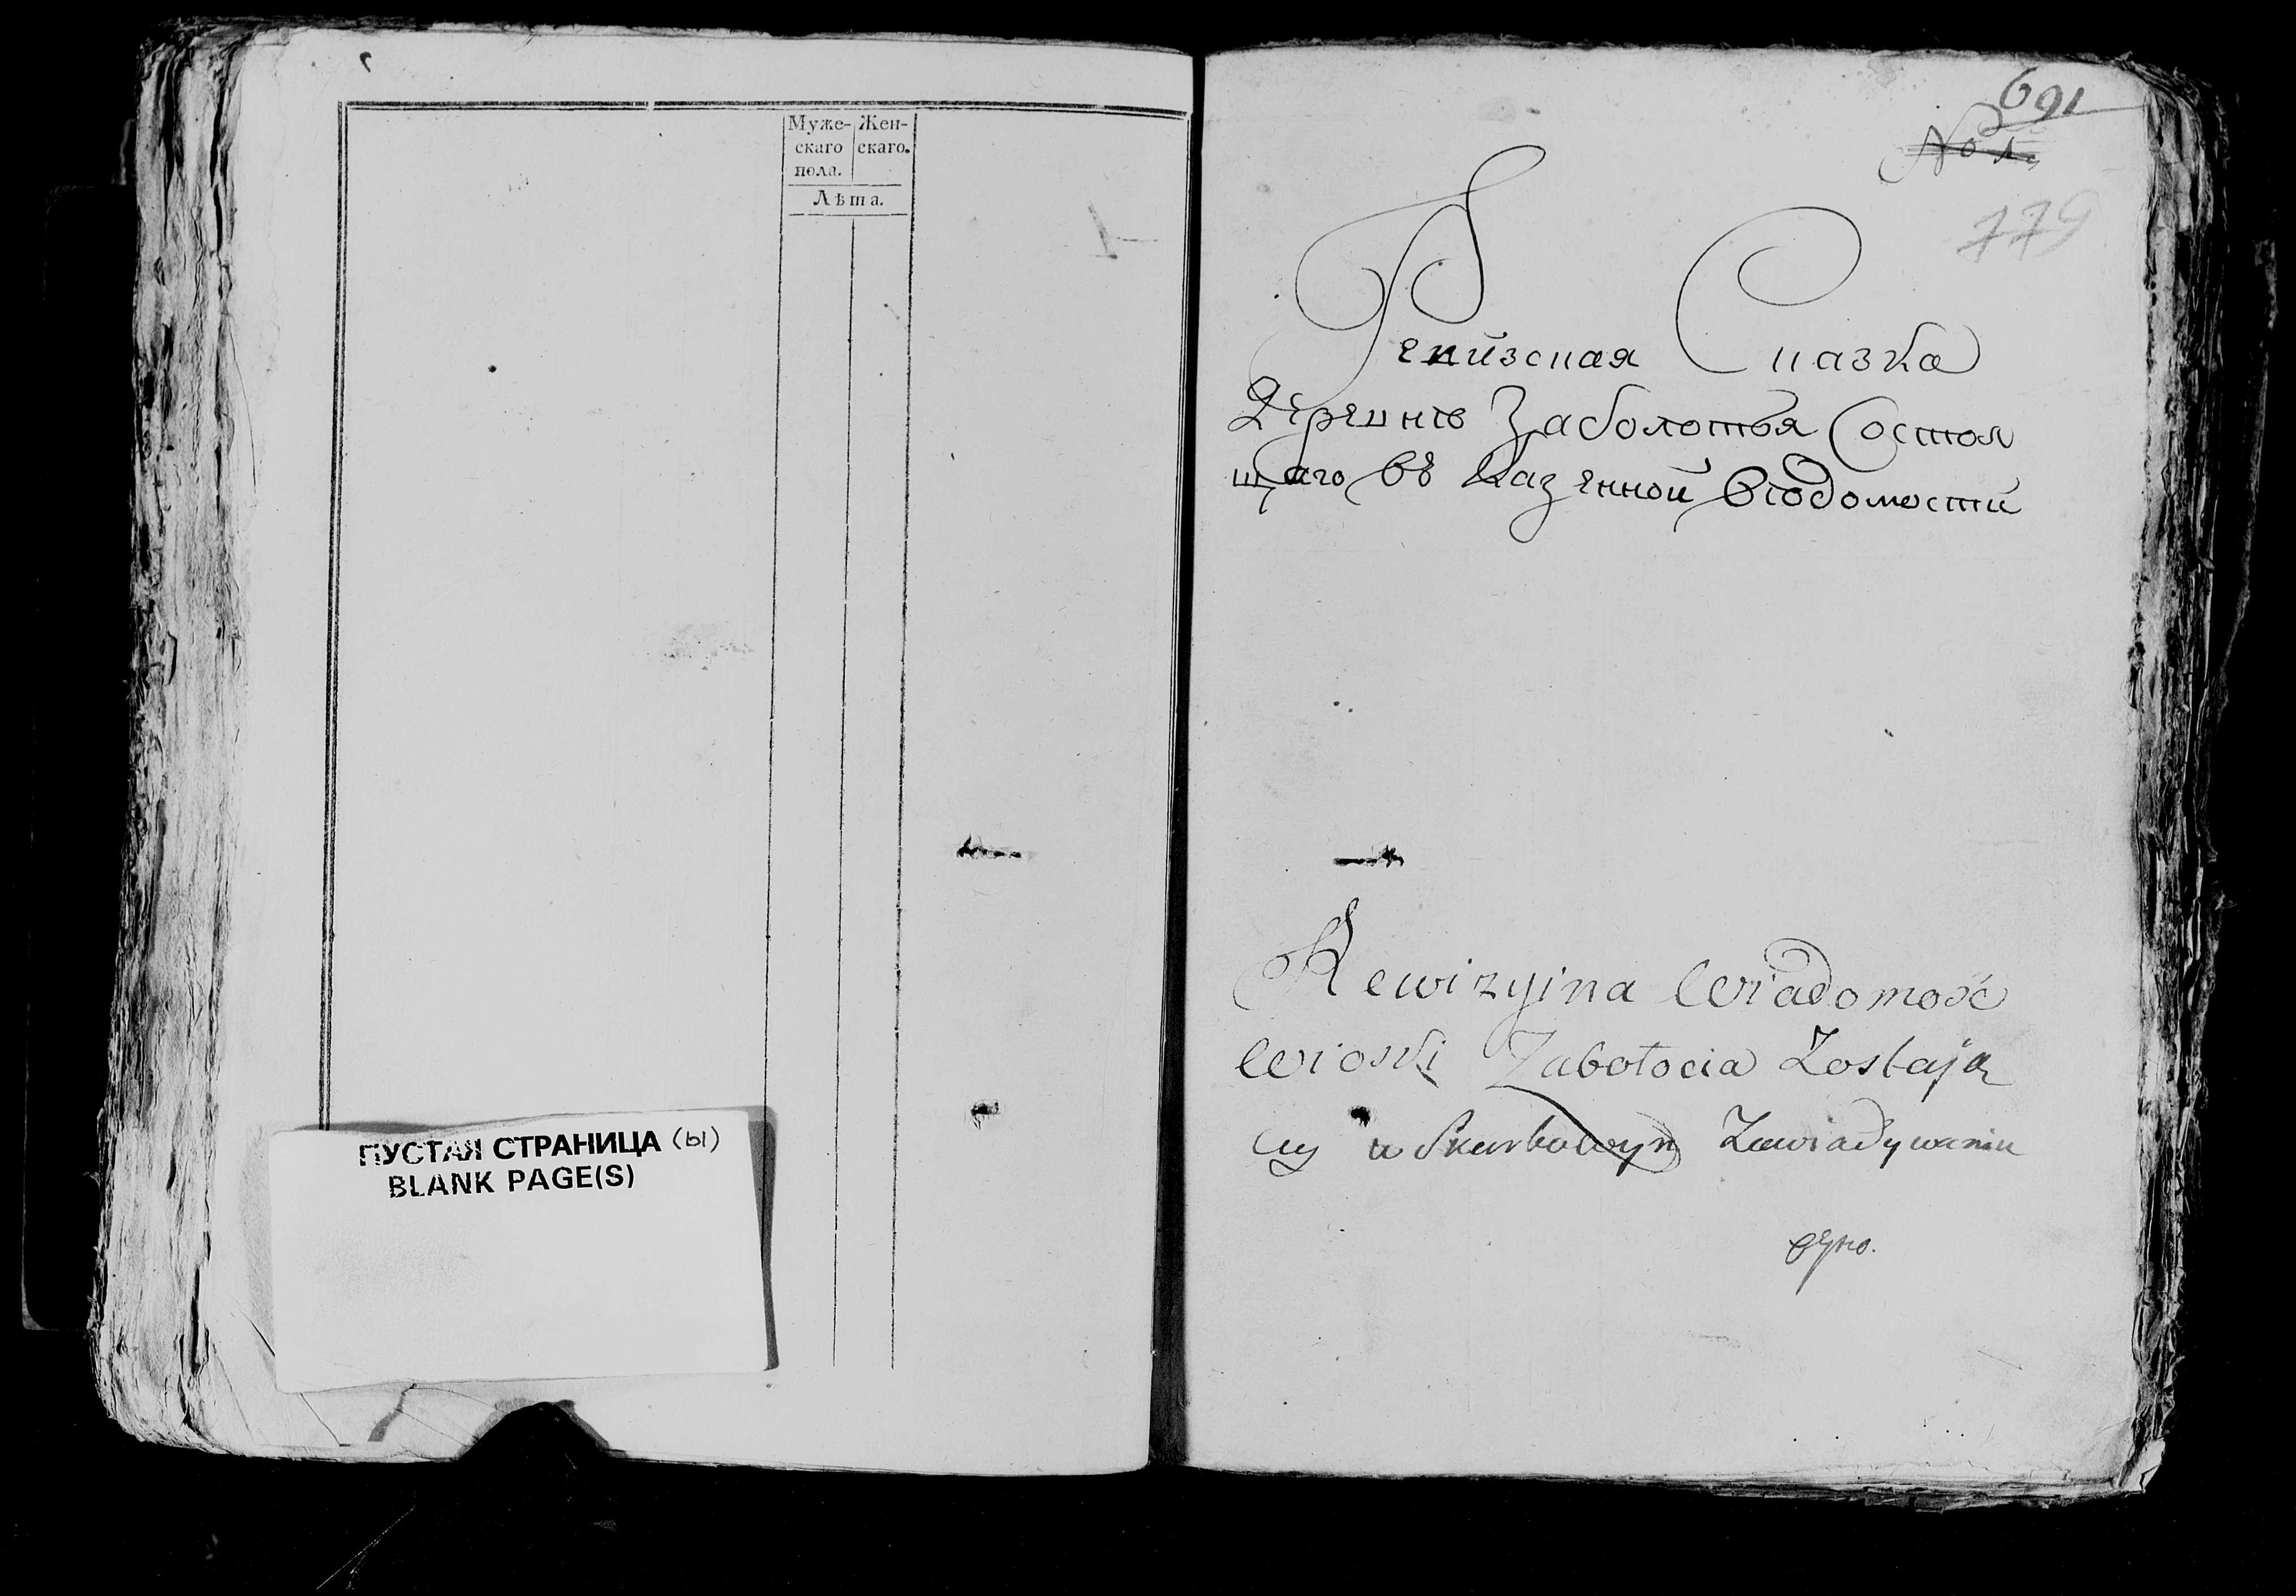 Муже- Жен-
скаго скаго.
пола.
Лѣта.
ПУСТАЯ СТРАНИЦА (ы)
BLANK PAGE(S)
691
779
Ревизская Сказка
Деревнѣ Заболотья Состоя
щаго въ Казенной Вѣдомости
Rewizyina Wiadomość
Wioski Zabołocia Zostają
cy w Skarbowym Zawiadywaniu